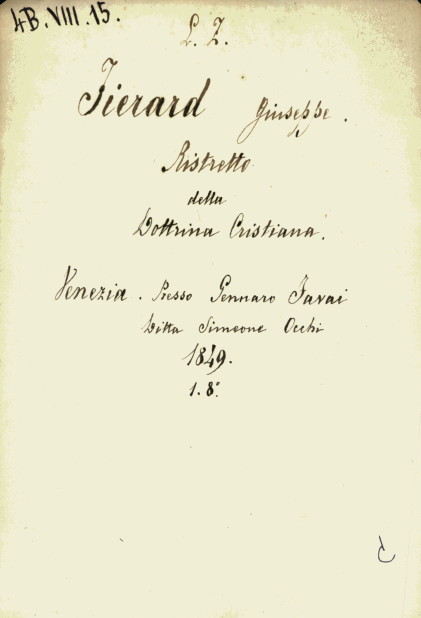 4B. VIII. 15.
L. Z.
Fierard Giuseppe.
Ristretto
della
Dottrina Cristiana.
Venezia. Presso Gennaro Favai
Ditta Simeone Occhi
1849.
1. 8°.